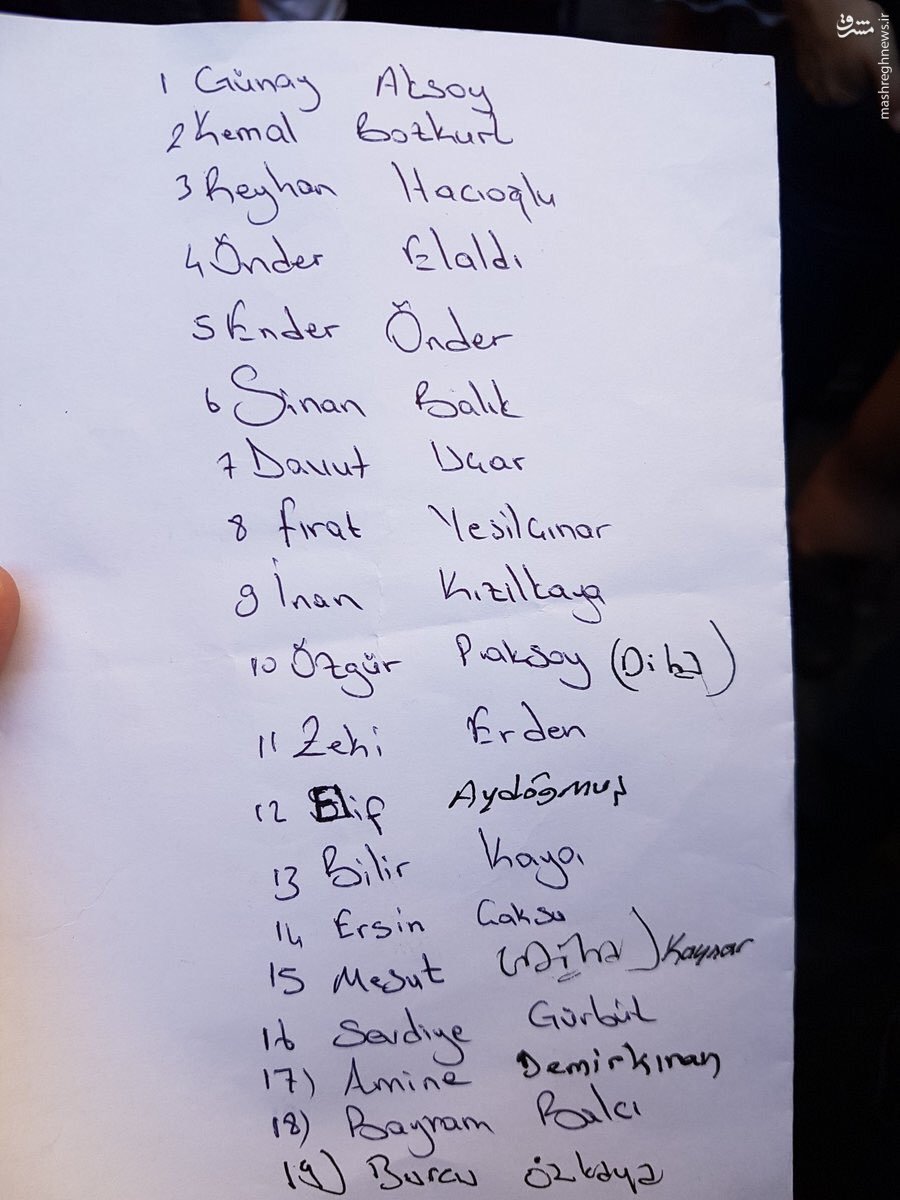 مشرق
mashreghnews.ir
1 Günay Aksoy
2 Kemal Bozkurt
3 Reyhan Hacıoğlu
4 Önder Elaldı
5 Ender Önder
6 Sinan Balık
7 Davut Uçar
8 fırat Yesilçınar
9 İnan Kızılkaya
10 Özgür Paksoy (Diha)
11 Zeki Erden
12 Elif Aydoğmuş
13 Bilir Kaya
14 Ersin Çaksu
15 Mesut (Diha) Kaynar
16 Sevdiye Gürbüz
17) Amine Demirkıran
18) Bayram Balcı
19) Burcu özkaya